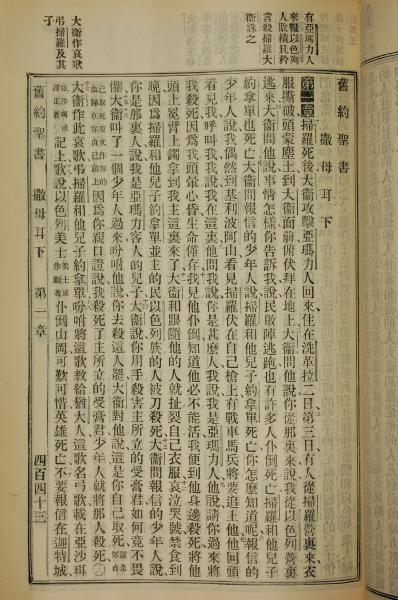 有亞瑪力人
來報以色列
人敗績且矜
言殺掃羅大
衞誅之
大衞作哀歌
弔掃羅及其
子
舊約聖書 撒母耳下
第一章掃羅死後大衞攻擊亞瑪力人回來住在洗革拉二日第三日有人從掃羅營裏來衣
服撕破頭蒙塵土到大衞面前俯伏拜在地上大衞問他說你從那裏來說我從以色列營裏
逃來大衞問他說事情怎樣你告訴我說民敗陣逃跑也有許多人仆倒死亡掃羅和他兒子
約拿單也死亡大衞問報信的少年人說掃羅和他兒子約拿單死亡你怎麽知道呢報信的
少年人說我偶然到基利波阿山看見掃羅伏在自己槍上有戰車馬兵將要追上他他回頭
看見我呼叫我我說我在這裏他問我說你是甚麽人我說我是亞瑪力人他說請你過來將
我殺死因爲我頭暈心昏生命僅存我見他仆倒知道他必不能活我便到他身邊殺死將他
頭上冕臂上鐲拿到我主這裏來了大衞和跟隨他的人就扯裂自己衣服哀泣哭號禁食到
晚因爲掃羅和他兒子約拿單並主的民以色列族的人被刀殺死大衞問報信的少年人說
你是那裏人說我是亞瑪力客人的兒子大衞說你用手殺害主所立的受膏君如何竟不畏
懼大衞叫了一個少年人過來吩咐他說你去殺這人罷大衞對他說這是你自己取死這是你自
己取死原文作你的血歸在你自己頭上因爲你親口證說我殺死了主所立的受膏君少年人就將那人殺死
大衞作此哀歌弔掃羅和他兒子約拿單吩咐將這歌教給猶大人這歌名弓歌載在亞沙珥
記上歌說以色列美士仆倒山岡可歎可惜英雄死亡不要報信在迦特城
舊約聖書 撒母耳下 第一章 四百四十三